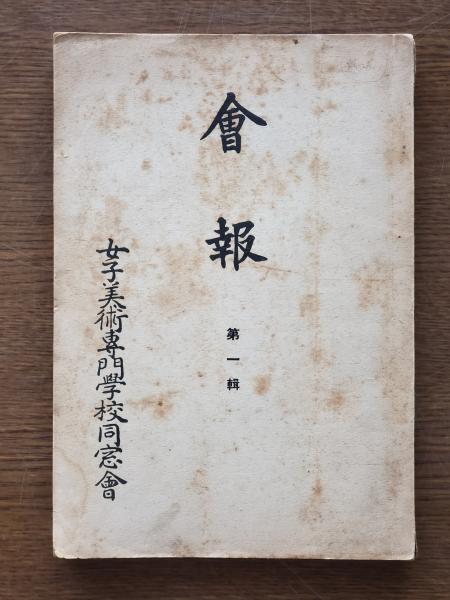 會報
第一輯
女子美術專門學校同窓會